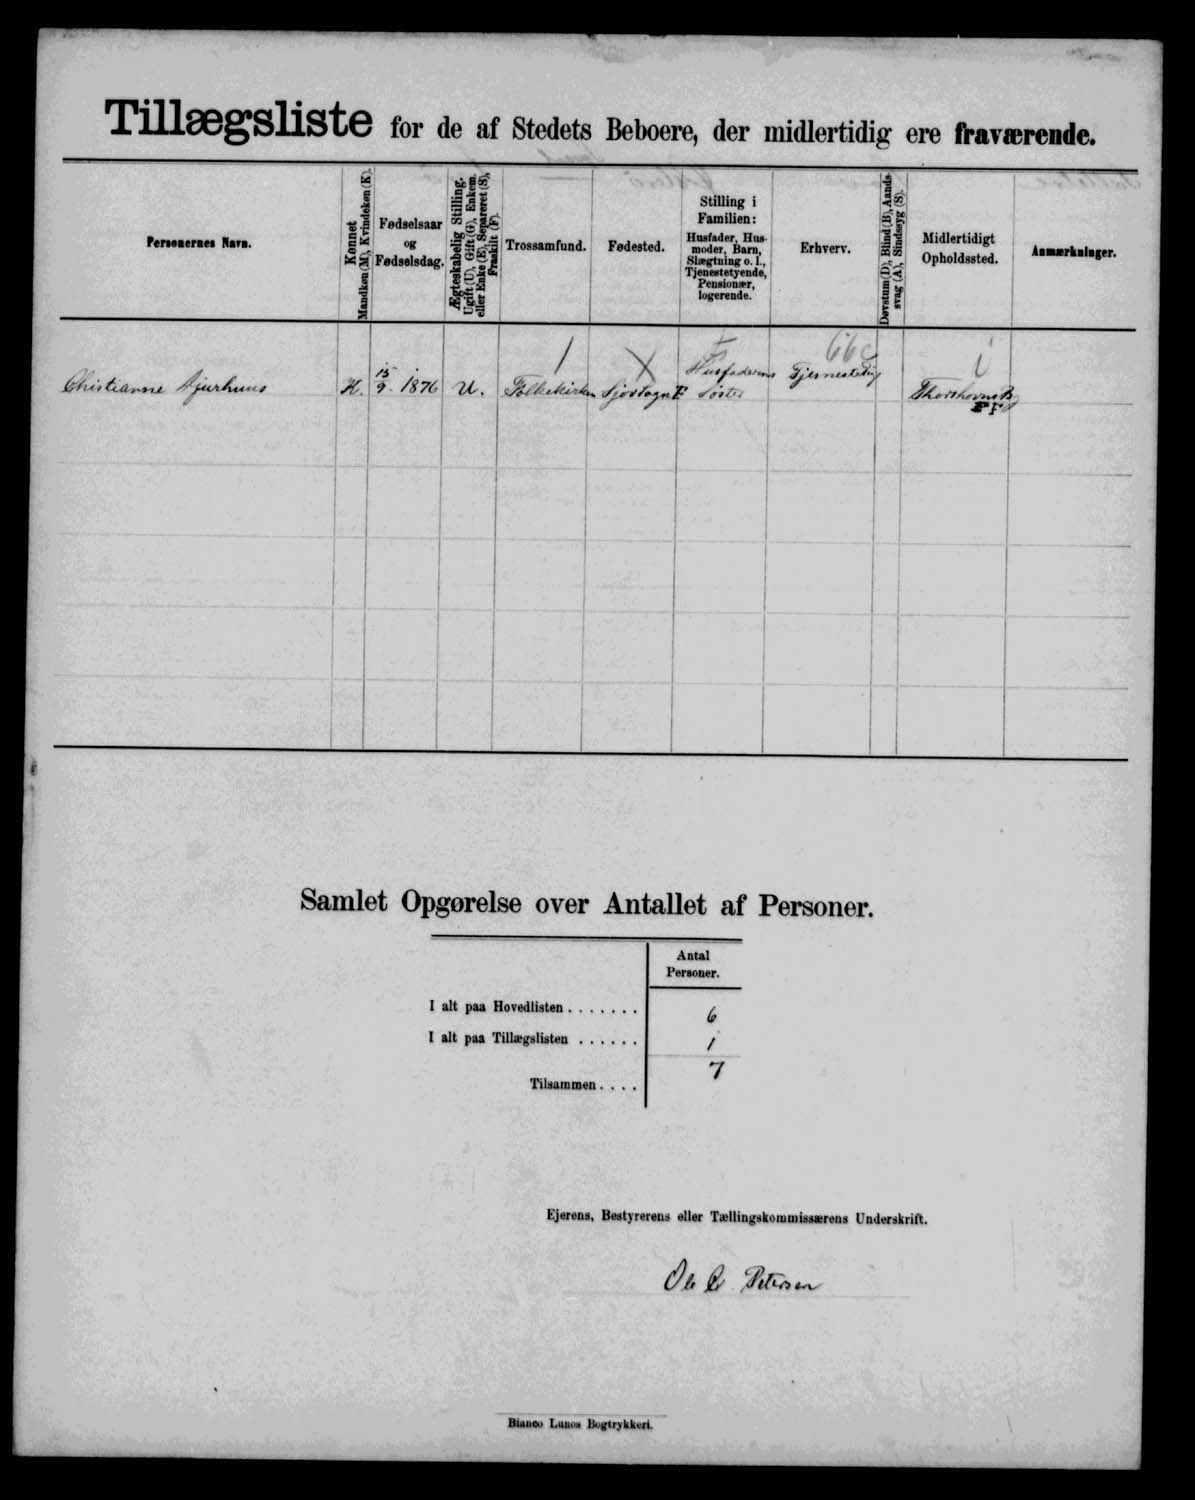 Tillægsliste for de af Stedets Beboere, der midlertidig ere fraværende.
Personernes Navn.
Kønnet
Mandkøn (M), Kvindekøn (K).
Fødselsaar
og
Fødselsdag.
Ægteskabelig Stilling.
Ugift (U), Gift (G), Enkem.
eller Enke (E), Separeret (S),
Fraskilt (F).
Trossamfund.
Fødested.
Stilling i
Familien:
Husfader, Hus-
moder, Barn,
Slægtning o. l.,
Tjenestetyende,
Pensionær,
logerende.
Erhverv.
Døvstum (D), Blind (B), Aands-
svag (A), Sindssyg (S).
Midlertidigt
Opholdssted.
Anmærkninger.
Christianne Djurhuus
K.
15
9. 1876
U.
Folkekirken
Husfaderens
Søster
Tjenestetyg
Thorshavns
Samlet Opgørelse over Antallet af Personer.
Antal
Personer.
I alt paa Hovedlisten . . . . . . . 6
I alt paa Tillægslisten . . . . . . 1
Tilsammen . . . . 7
Ejerens, Bestyrerens eller Tællingskommissærens Underskrift.
Ole C. Petersen
Bianco Lunos Bogtrykkeri.